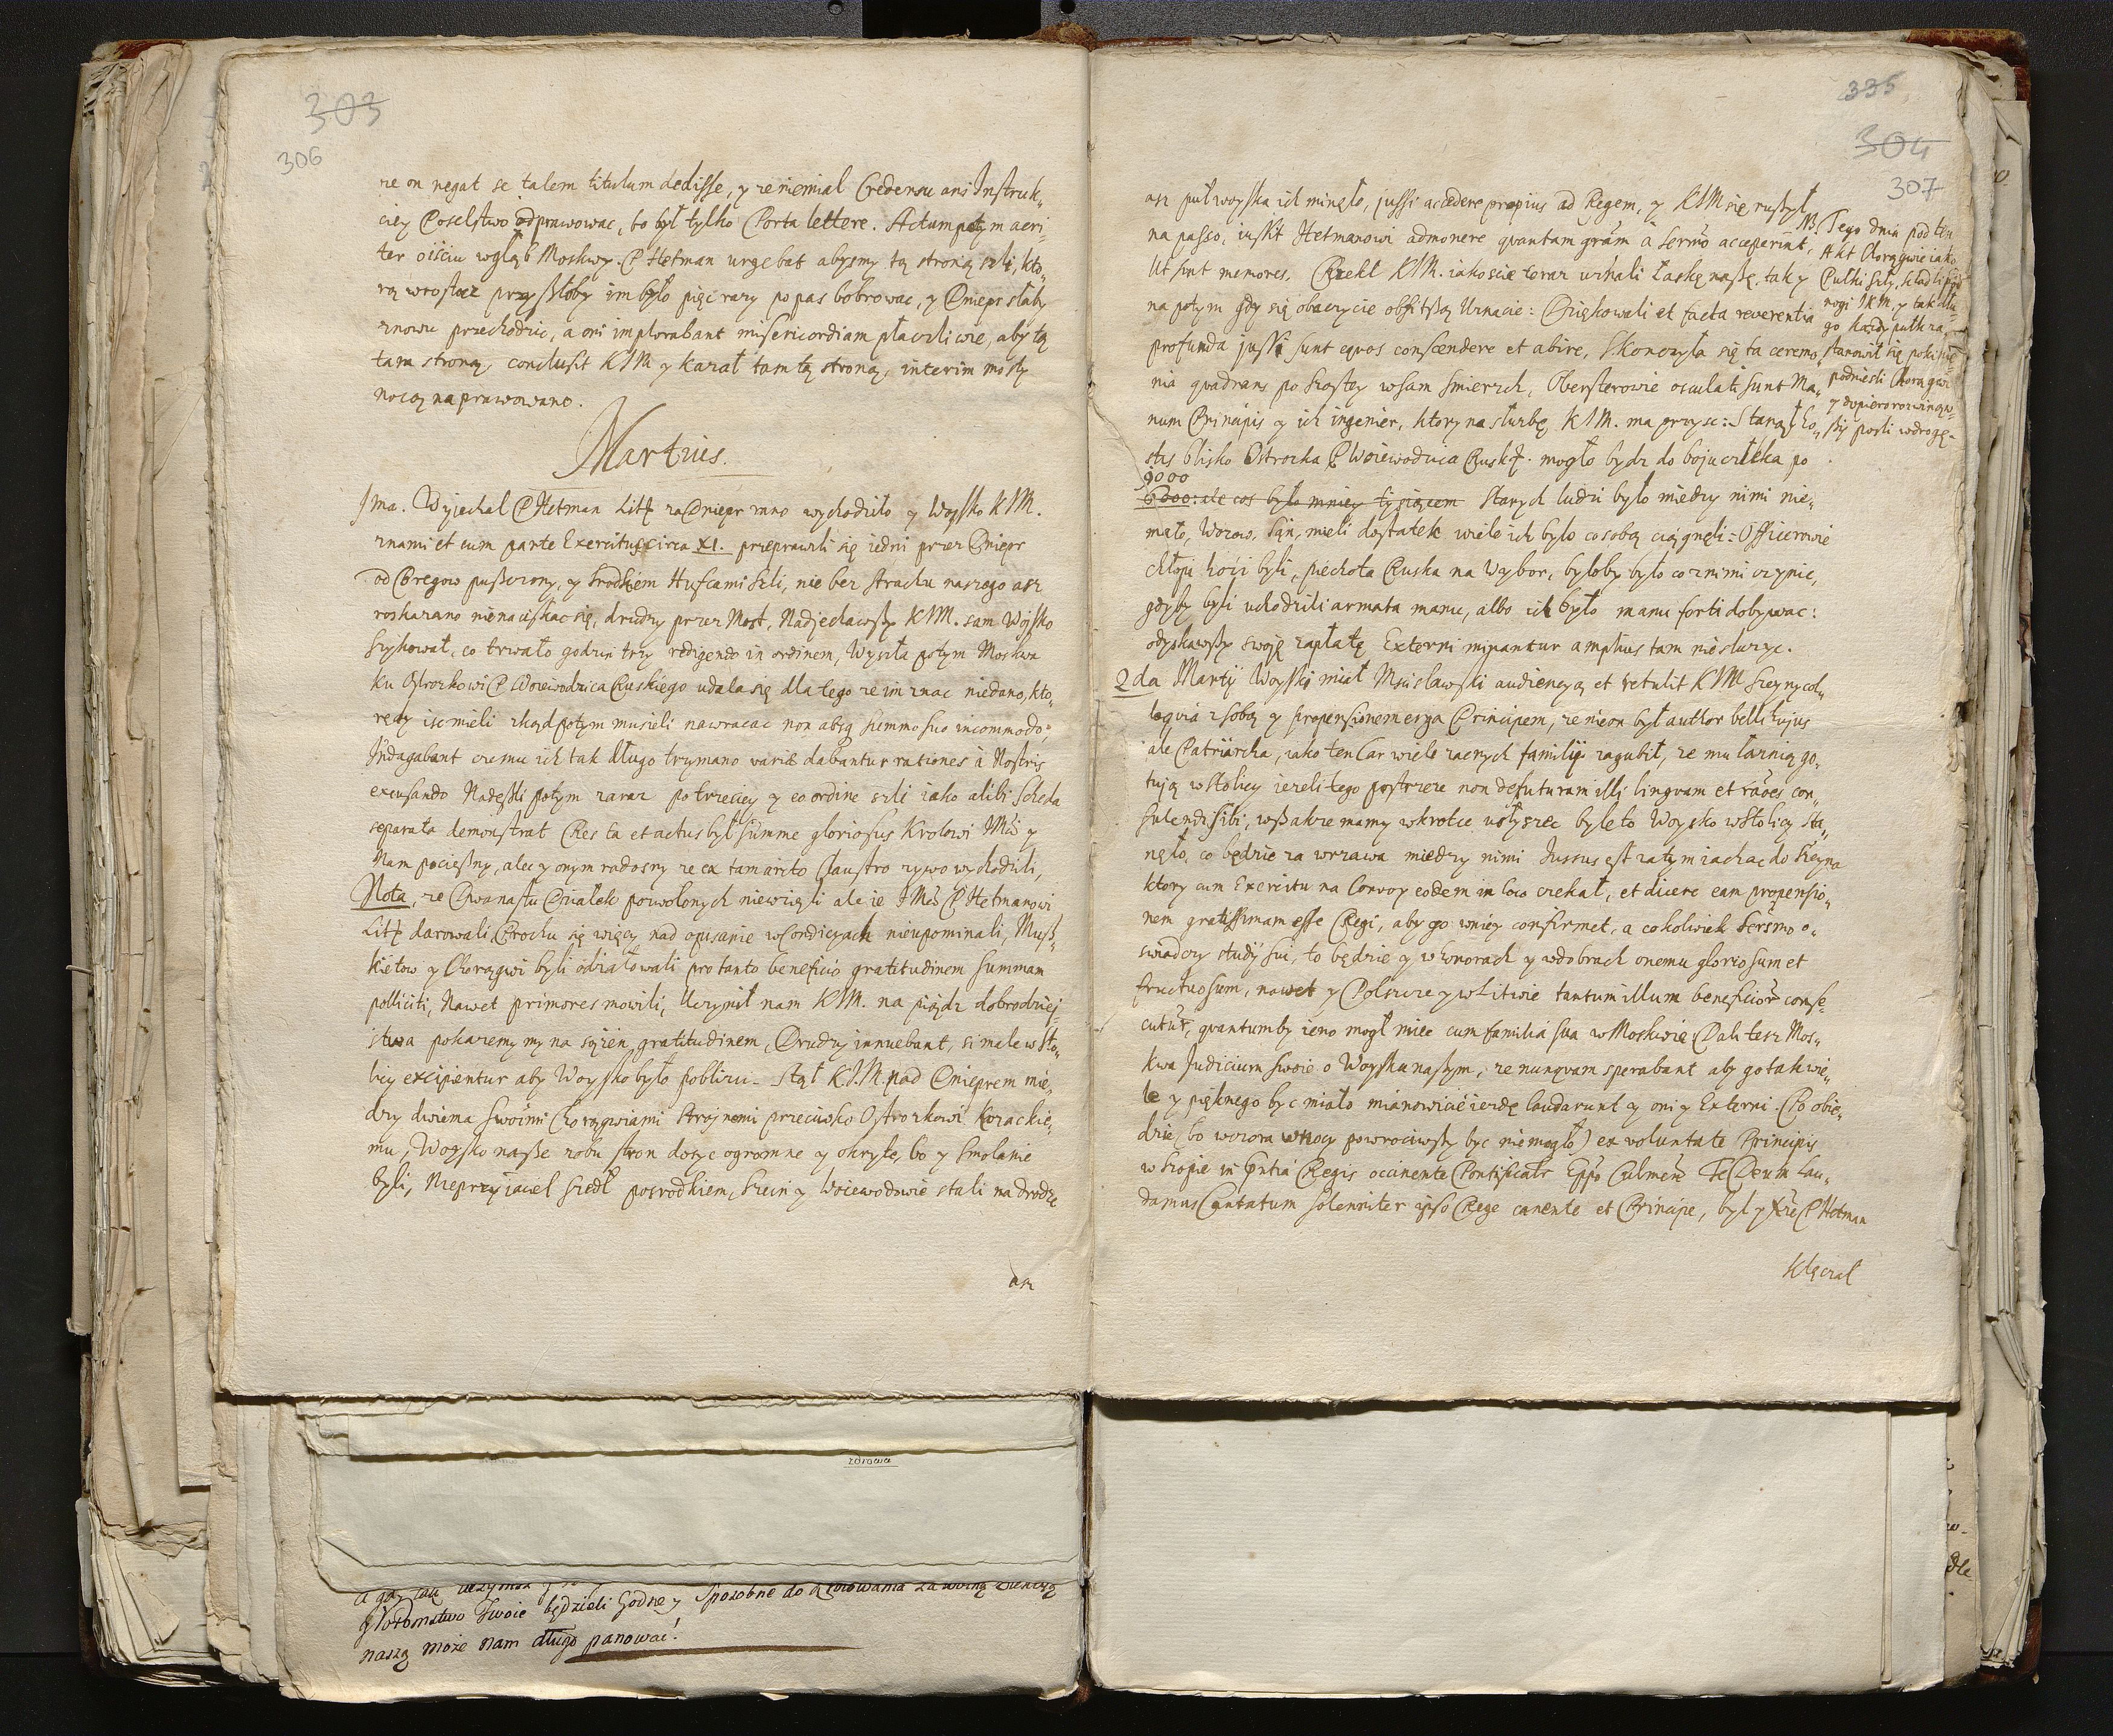 303
306
że on negat se talem titulum dedisse, y że niemial Credensu ani Instruk„
ciey Poselstwo odprawowac, to był tylko Porta lettere. Actum potym acri„
ter oiściu wgłąb Moskwy. P Hetman urgebat abysmy tą stroną szli, kto„
rą wrosłocz przyszłoby im było pięc razy po pas bobrowac, y Dniepr słaby
znowu przechodzic, a oni implorabant misericordiam płaczliwie, aby tą
tam stroną, conclusit KJM y kazał tam tą stroną, interim mosty
nocą naprawowano.
Martius.
1ma. Wyjechal P Hetman Litt za Dniepr rano wychodziło y Woysko KJM.
znami et cum parte Exercitus circa XI. przeprawili się iedni przez Dniepr
od Bregow puszczony, y srodkiem Hufcami szli, nie bez strachu naszego asz
roskazano nienaciskac się, drudzy przez Most, Nadjechawszy KJM. sam Woysko
szykował, co trwało godzin trzy redigendo in ordinem, Wyszła potym Moskwa
ku Ostrozkowi P Woiewodzica Ruskiego udala się dla tego że im znac niedano, kto„
rędy isc mieli zkąd potym musieli nawracac non absq summo suo incommodo:
Indagabant czemu ich tak długo trzymano variæ dabantur rationes à Nostris
excusando Nadeszli potym zaraz po trzeciey y eo ordine szli iako alibi Scheda
separata demonstrat Res ta et actus był summe gloriosus Krolowi JMci y
Nam pocieszny, alec y onym radosny że ex tam arcto Claustro zywo wychodzili,
Nota, że Dwanastu Działek pozwolonych niewzięli ale ie JMci P Hetmanowi
Litt darowali, Prochu się więcy nad opisanie wCondicyach nieupominali, Musz„
kietow y Chorągwi byli odzialowali pro tanto beneficio gratitudinem summam
polliciti, Nawet primores mowili, Uczynił nam KJM. na piądz dobrodziej„
stwa pokazemy my na sążen gratitudinem, Drudzy innuebant, si male w Sto„
licy excipientur aby Woysko było poblizu. Stał K.J.M. nad Dnieprem mie„
dzy dwiema swoimi Chorągwiami strojnemi przeciwko Ostrozkowi Kozackie„
mu, Woysko nasze zobu stron dosyc ogromne y okryte, bo y Smolanie
byli, Nieprzyjaciel szedł posrodkiem, Szein y Woiewodowie stali na drodze
asz
zdrowa
y Potomstwo Twoie będzieli Godne y Sposobne do
naszą może nam długo panowac!
335
304
307
asz puł woyska ich minęło, jussi accedere propius ad Regem, y KJM się ruszył
na passo, iussit Hetmanowi admonere quantam grãm à Sermo acceperint,
Ut sint memores. Rzekł KJM. iakoscie teraz uznali łaskę naszę, tak y
na potym gdy się obaczycie obfitszą Uznacie: Dziękowali et facta reverentia
profunda jussi sunt equos conscendere et abire, Skonczyła się ta ceremo„
nia quadrans po szostey wsam smierzch, Obersterowie osculati sunt Ma„
num Principis y ich ingenier, ktory na służbę KJM. ma przysc: Stanął ho„
stis blisko Ostrozka P Woiewodzica Rusk°. mogło bydz do boju człeka po
9000
6000: ale cos było mniey tysiącem Starych ludzi było miedzy nimi nie„
mało, Wozow, Sań, mieli dostatek wiele ich było co sobą ciągnęli: Officerowie
chłopi hozi byli, piechota Ruska na Wybor, byłoby było co z nimi czynic,
gdyby byli uchodzili armata manu, albo ich było manu forti dobywac:
odyskawszy swoję zapłatę Externi minantur amplius tam niesłuzyc.
2da Martij Woyski miał Mscisławski audiencyą et retulit KJM Szeyny col„
loquia zsobą y propensionem erga Principem, że nieon był author belli hujus
ale Patriarcha, iako ten Car wiele zacnych familij zagubił, że mu łaznią go„
tują w Stolicy iezeli tego postrzeze non defuturam illi linguam et rãões con„
sulendi sibi, wszakze mamy wkrotce usłyszec byle to Woysko w Stolicy sta„
nęło, co będzie za wrzawa miedzy nimi Jussus est zatym iachac do Szeyna
ktory cum Exercitu na Convoy eodem in loco czekał, et dicere eam propensio„
nem gratissimam esse Regi, aby go wniey confirmet, a cokolwiek Sermo o„
swiadczy studij sui, to będzie y w honorach y wdobrach onemu gloriosum et
fructuosum, nawet y w Polszcze y w Litwie tantum illum beneficior̃ conse„
cutur̃, quantumby ieno mogł miec cum familia sua w Moskwie Dali tesz Mos„
kwa Judicium swoie o Woysku naszym, że nunquam sperabant aby go tak wie„
le y pięknego byc miało mianowicie iezdę laudarunt y oni y Externi. Po obie„
dzie (bo wczora w nocy powrociwszy byc niemogło) ex voluntate Principis
w szopie in Pntia Regis occinente Pontificalr Eppo Culmen̄ Te Deum Lau„
damus Cantatum solenniter ipso Rege canente et Principe, był y Xże P Hetman
Klęczał
NB. Tego dnia pod ten
Akt Chorągwie iako
Pułki szły, kładli pod
nogi JKM. y tak dłu„
go kazdy pułk za„
stanowił się poki nie
podniesli Chorągwi
y dopiero rozwinąw„
szy poszli wdrogę.